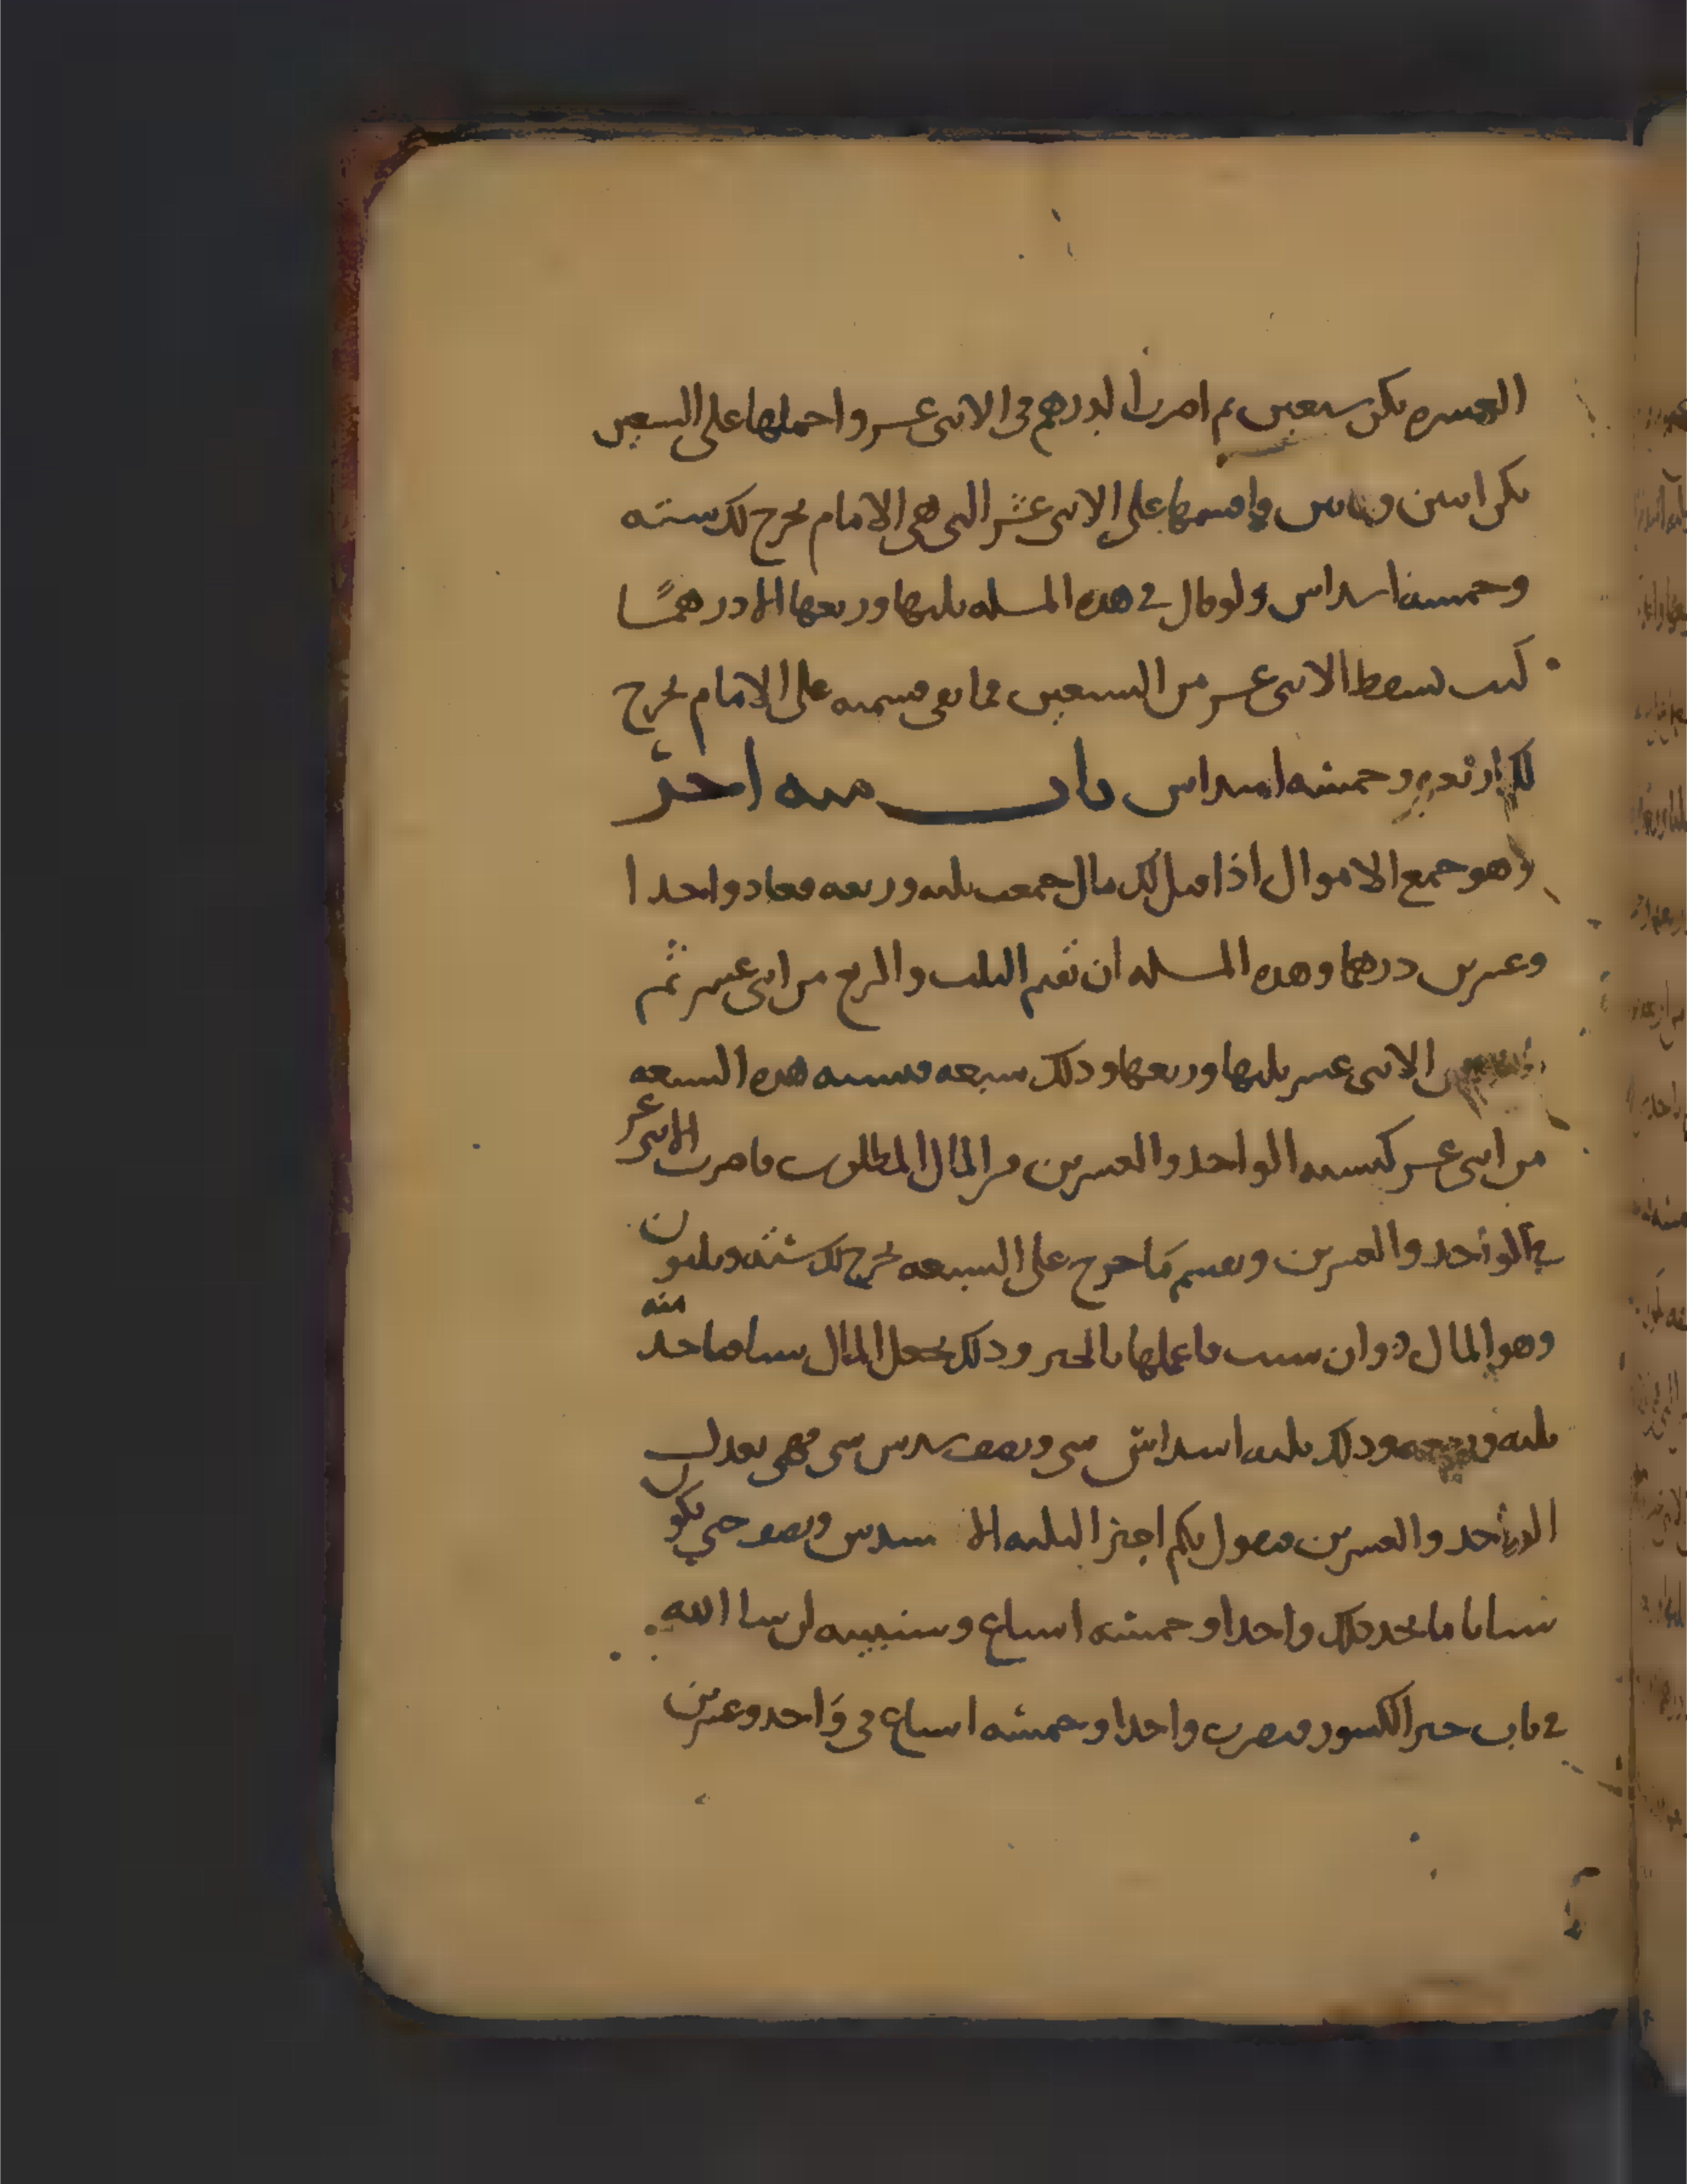 العشره تكن سبعين ثم اضرب الدرهم في الاثنى عشر واحملها على السبعين
تكن اثنين وثمانين واقسمها على الاثنى عشر التي هي الامام يخرج لك ستة
وخمسة اسداس ولو قال في هذه المسله ثلثها وربعها الا درهمًا
كنت تسقط الاثنى عشر من السبعين فما بقي قسمته على الامام يخرج
لك اربعة وخمسة اسداس باب منه اخر
وهو جمع الاموال اذا قيل لك مال جمعت ثلثه وربعه فعاد واحدا
وعشرين درهما وهذه المسله ان تقيم الثلث والربع من اثنى عشر ثم
الاثنى عشر ثلثها وربعها وذلك سبعه فنسبه هذه السبعه
من اثنى عشر كنسبه الواحد والعشرين من المال المطلوب فاضرب الاثنى عشر
في الواحد والعشرين وتقسم ما خرج على السبعه يخرج لك ستة وثلثون
وهو المال وان شيت فاعملها بالجبر وذلك تجعل المال شيا فتاخذ منه
ثلثه وربعه وذلك ثلثه اسداس شي ونصف سدس شي فهي تعدل
الواحد والعشرين فتقول بكم اجبر الثلثه الا سدس ونصف حتي تكون
شيا تاما تجد ذلك واحدا وخمسة اسباع وسنبينه ان شا الله
في باب جبر الكسور فتضرب واحدا وخمسة اسباع في واحد وعشرين